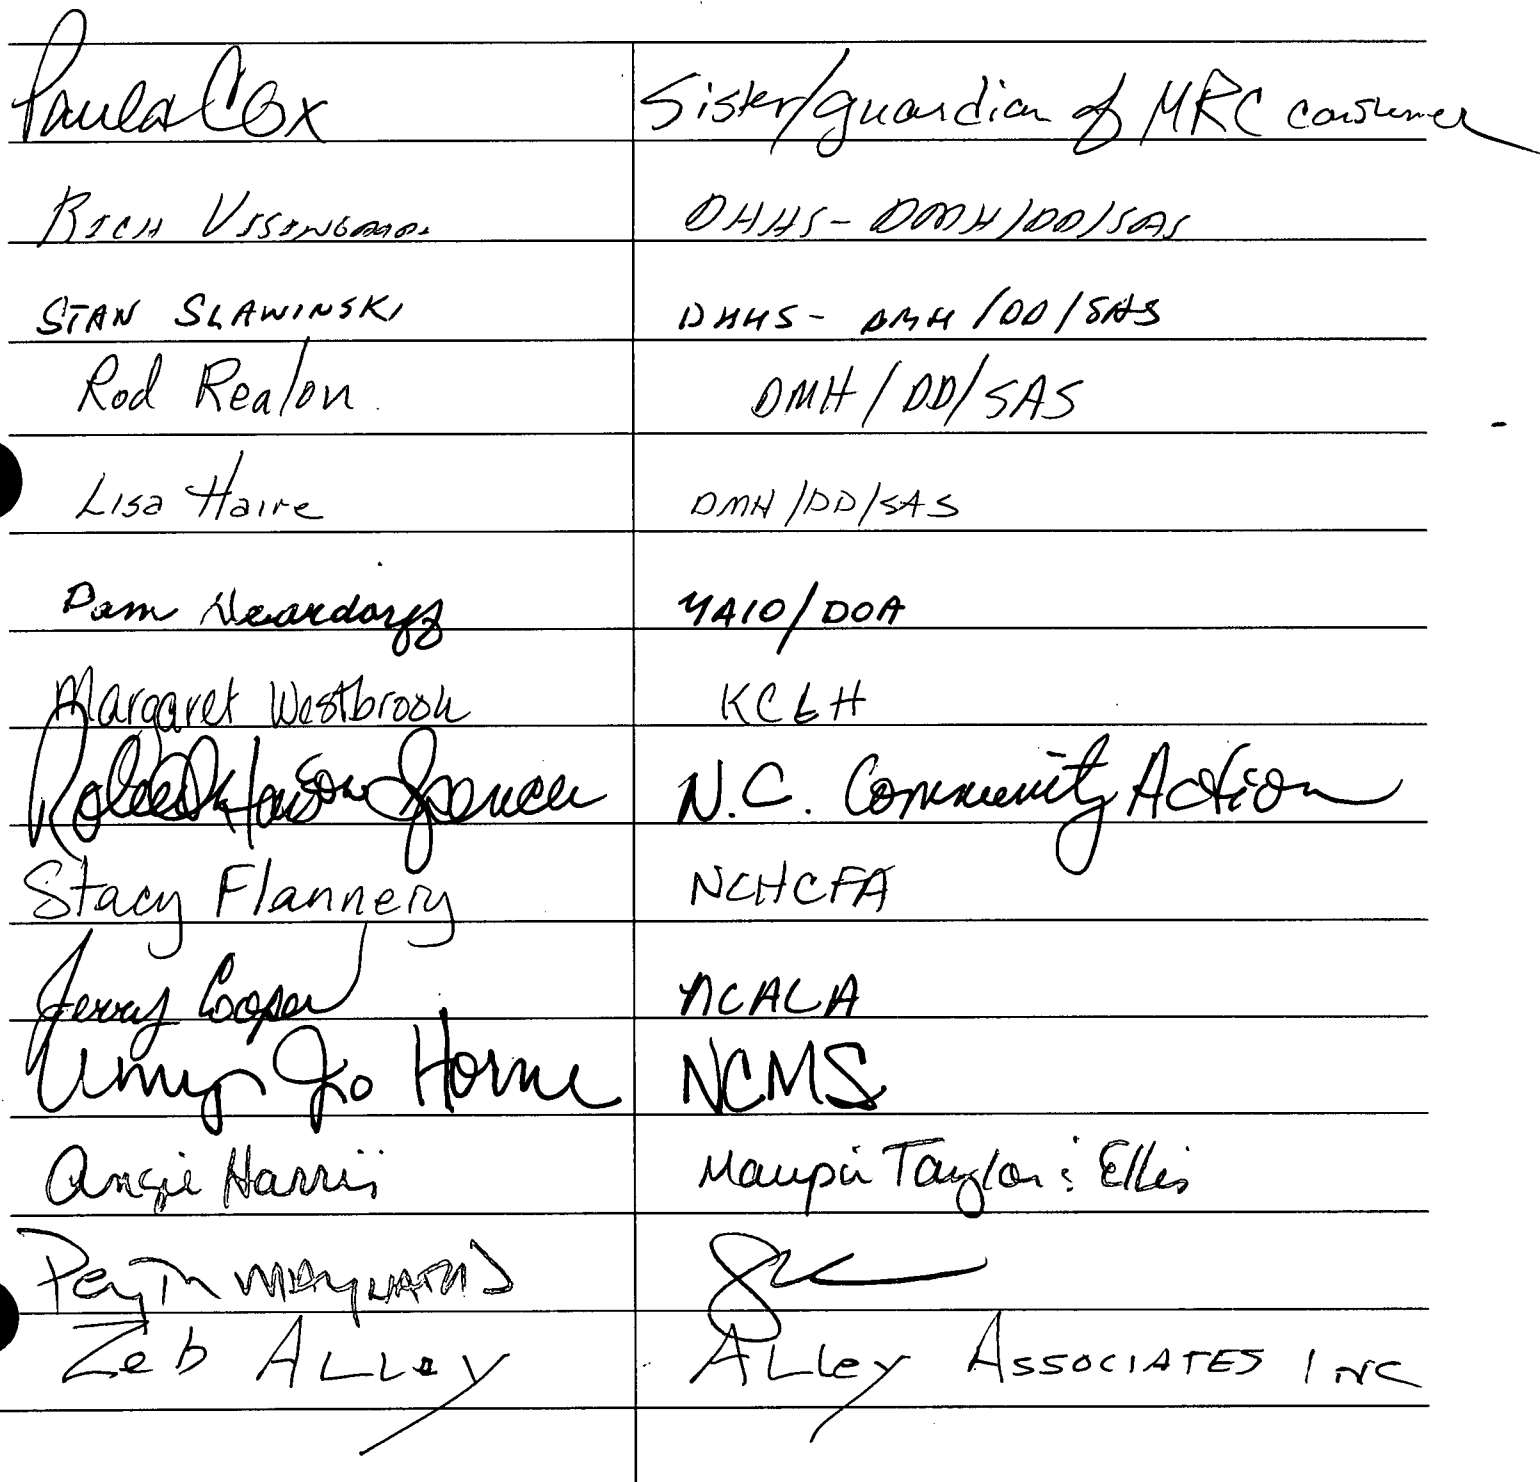 Paula Cox Sister/guardian of MRC consumer
Rich DHHS-DMH/DD/SAS
STAN SLAWINSKI DHHS-DMH/DD/SAS
Rod Realon DMH/DD/SAS
Lisa Haire DMH/DD/SAS
Pam YAIO/DOA
Margaret Westbrook KC&H
Spencer N.C. Community Action
Stacy Flannery NCHCFA
Jerry Cooper NCALA
Amy Jo Horne NCMS
Angie Harris Maupin Taylor & Ellis
Zeb ALLey ALLey ASSOCIATES INC